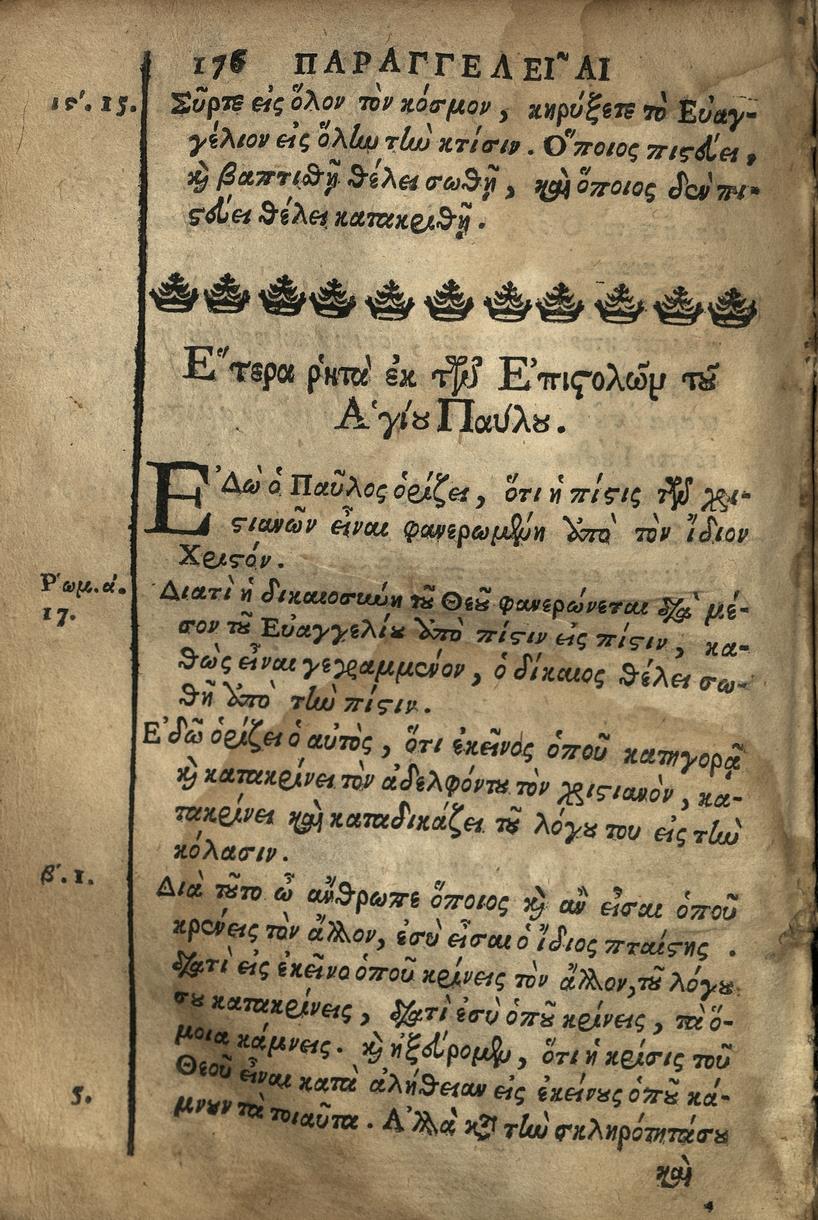 176 ΠΑΡΑΓΓΕΛΕΙ῀ΑΙ
ις΄. 15. Σῦρτε εἰς ὅλον τὸν κόσμον, κηρύξετε τὸ Εὐαγ-
γέλιον εἰς ὅλην τὴν κτίσιν. Ὅποιος πιστεύει,
καὶ βαπτιθῇ θέλει σωθῇ, καὶ ὅποιος δὲν πι-
στεύει θέλει κατακριθῇ.
Ἕτερα ῥητὰ ἐκ τῶν Ἐπιστολῶν τοῦ
Ἁγίου Παύλου.
ἘΔὼ ὁ Παῦλος ὁρίζει, ὅτι ἡ πίστις τῶν χρι-
στιανῶν εἶναι φανερωμένη ἀπὸ τὸν ἴδιον
Χριστόν.
Ῥωμ. ά. 17. Διατὶ ἡ δικαιοσύνη τοῦ Θεοῦ φανερώνεται διὰ μέ-
σον τοῦ Εὐαγγελίου ἀπὸ πίστιν εἰς πίστιν, κα-
θὼς εἶναι γεγραμμένον, ὁ δίκαιος θέλει σω-
θῆ ἀπὸ τὴν πίστιν.
Ἐδῶ ὁρίζει ὁ αὐτὸς, ὅτι ἐκεῖνός ὁποῦ κατηγορᾷ
καὶ κατακρίνει τὸν ἀδελφόντου τὸν χριστιανὸν, κα-
τακρίνει καὶ καταδικάζει τοῦ λόγου του εἰς τὴν
κόλασιν.
β΄. 1. Διὰ τοῦτο ὦ ἄνθρωπε ὅποιος καὶ ἂν εἶσαι ὁποῦ
κρένεις τὸν ἄλλον, ἐσὺ εἶσαι ὁ ἴδιος πταίστης.
διατὶ εἰς ἐκεῖνο ὁποῦ κρίνεις τὸν ἄλλον, τοῦ λόγου
σου κατακρίνεις, διατὶ ἐσὺ ὁποῦ κρίνεις, τὰ ὅ-
μοια κάμνεις. καὶ ἠξεύρομεν, ὅτι ἡ κρίσις τοῦ
Θεοῦ εἶναι κατὰ ἀλήθειαν εἰς ἐκείνους ὁποῦ κά-
5. μνουν τὰ τοιαῦτα. Ἀλλὰ κατὰ τὴν σκληρότητάσου
καὶ